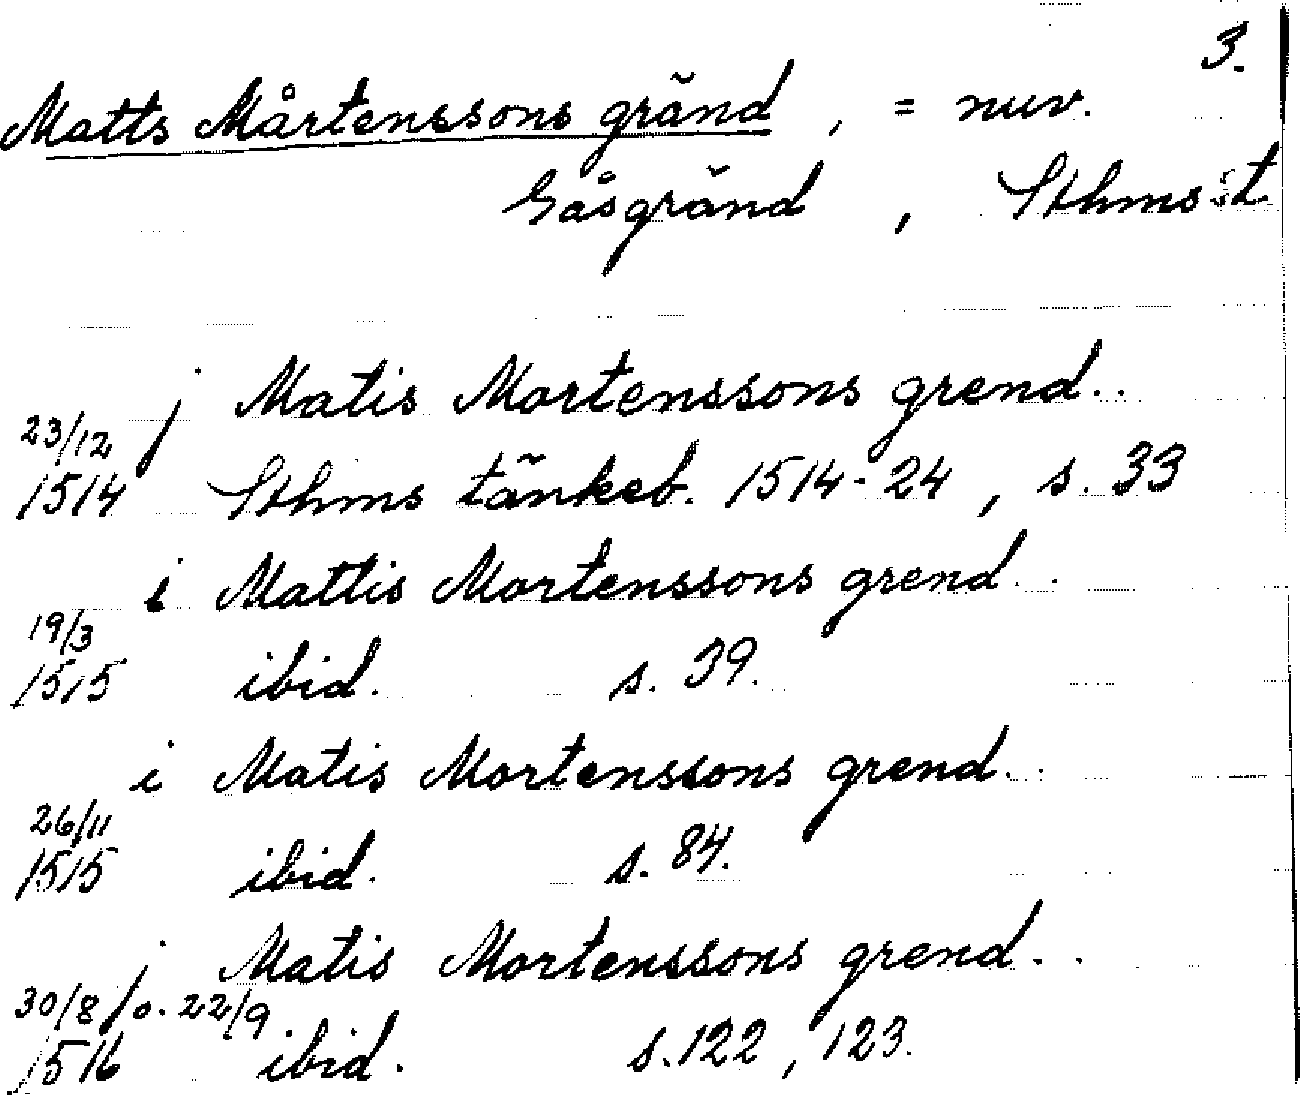 3.
Matts Mårtenssons gränd, = nuv.
Gåsgränd, Sthms st
j Matis Mortenssons grend..
23/12
1514 Sthms tänkeb. 1514-24, s. 33
i Mattis Mortenssons grend..
19/3
1515 ibid. s. 39.
i Matis Mortenssons grend..
26/11
1515 ibid. s. 84.
j Matis Mortenssons grend..
30/8 o. 22/9.
1516 ibid. s. 122, 123.